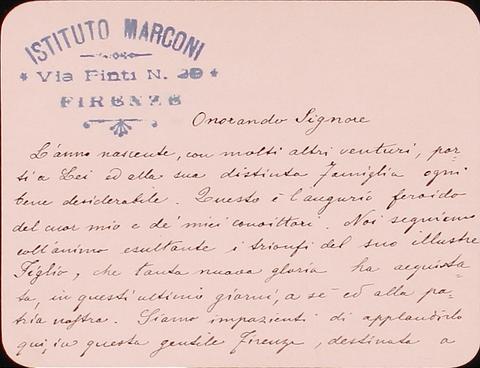 ISTITUTO MARCONI
Via Pinti N. 29
FIRENZE
Onorando Signore
L'anno nascente, con molti altri venturi, por=
ti a Lei ed alla sua distinta Famiglia ogni
bene desiderabile. Questo è l'augurio fervido
del cuor mio e de' miei convittori. Noi seguiamo
coll'animo esultante i trionfi del suo illustre
Figlio, che tanta nuova gloria ha acquista=
ta, in questi ultimi giorni, a sè ed alla pa=
tria nostra. Siamo impazienti di applaudirlo
qui, in questa gentile Firenze, destinata a